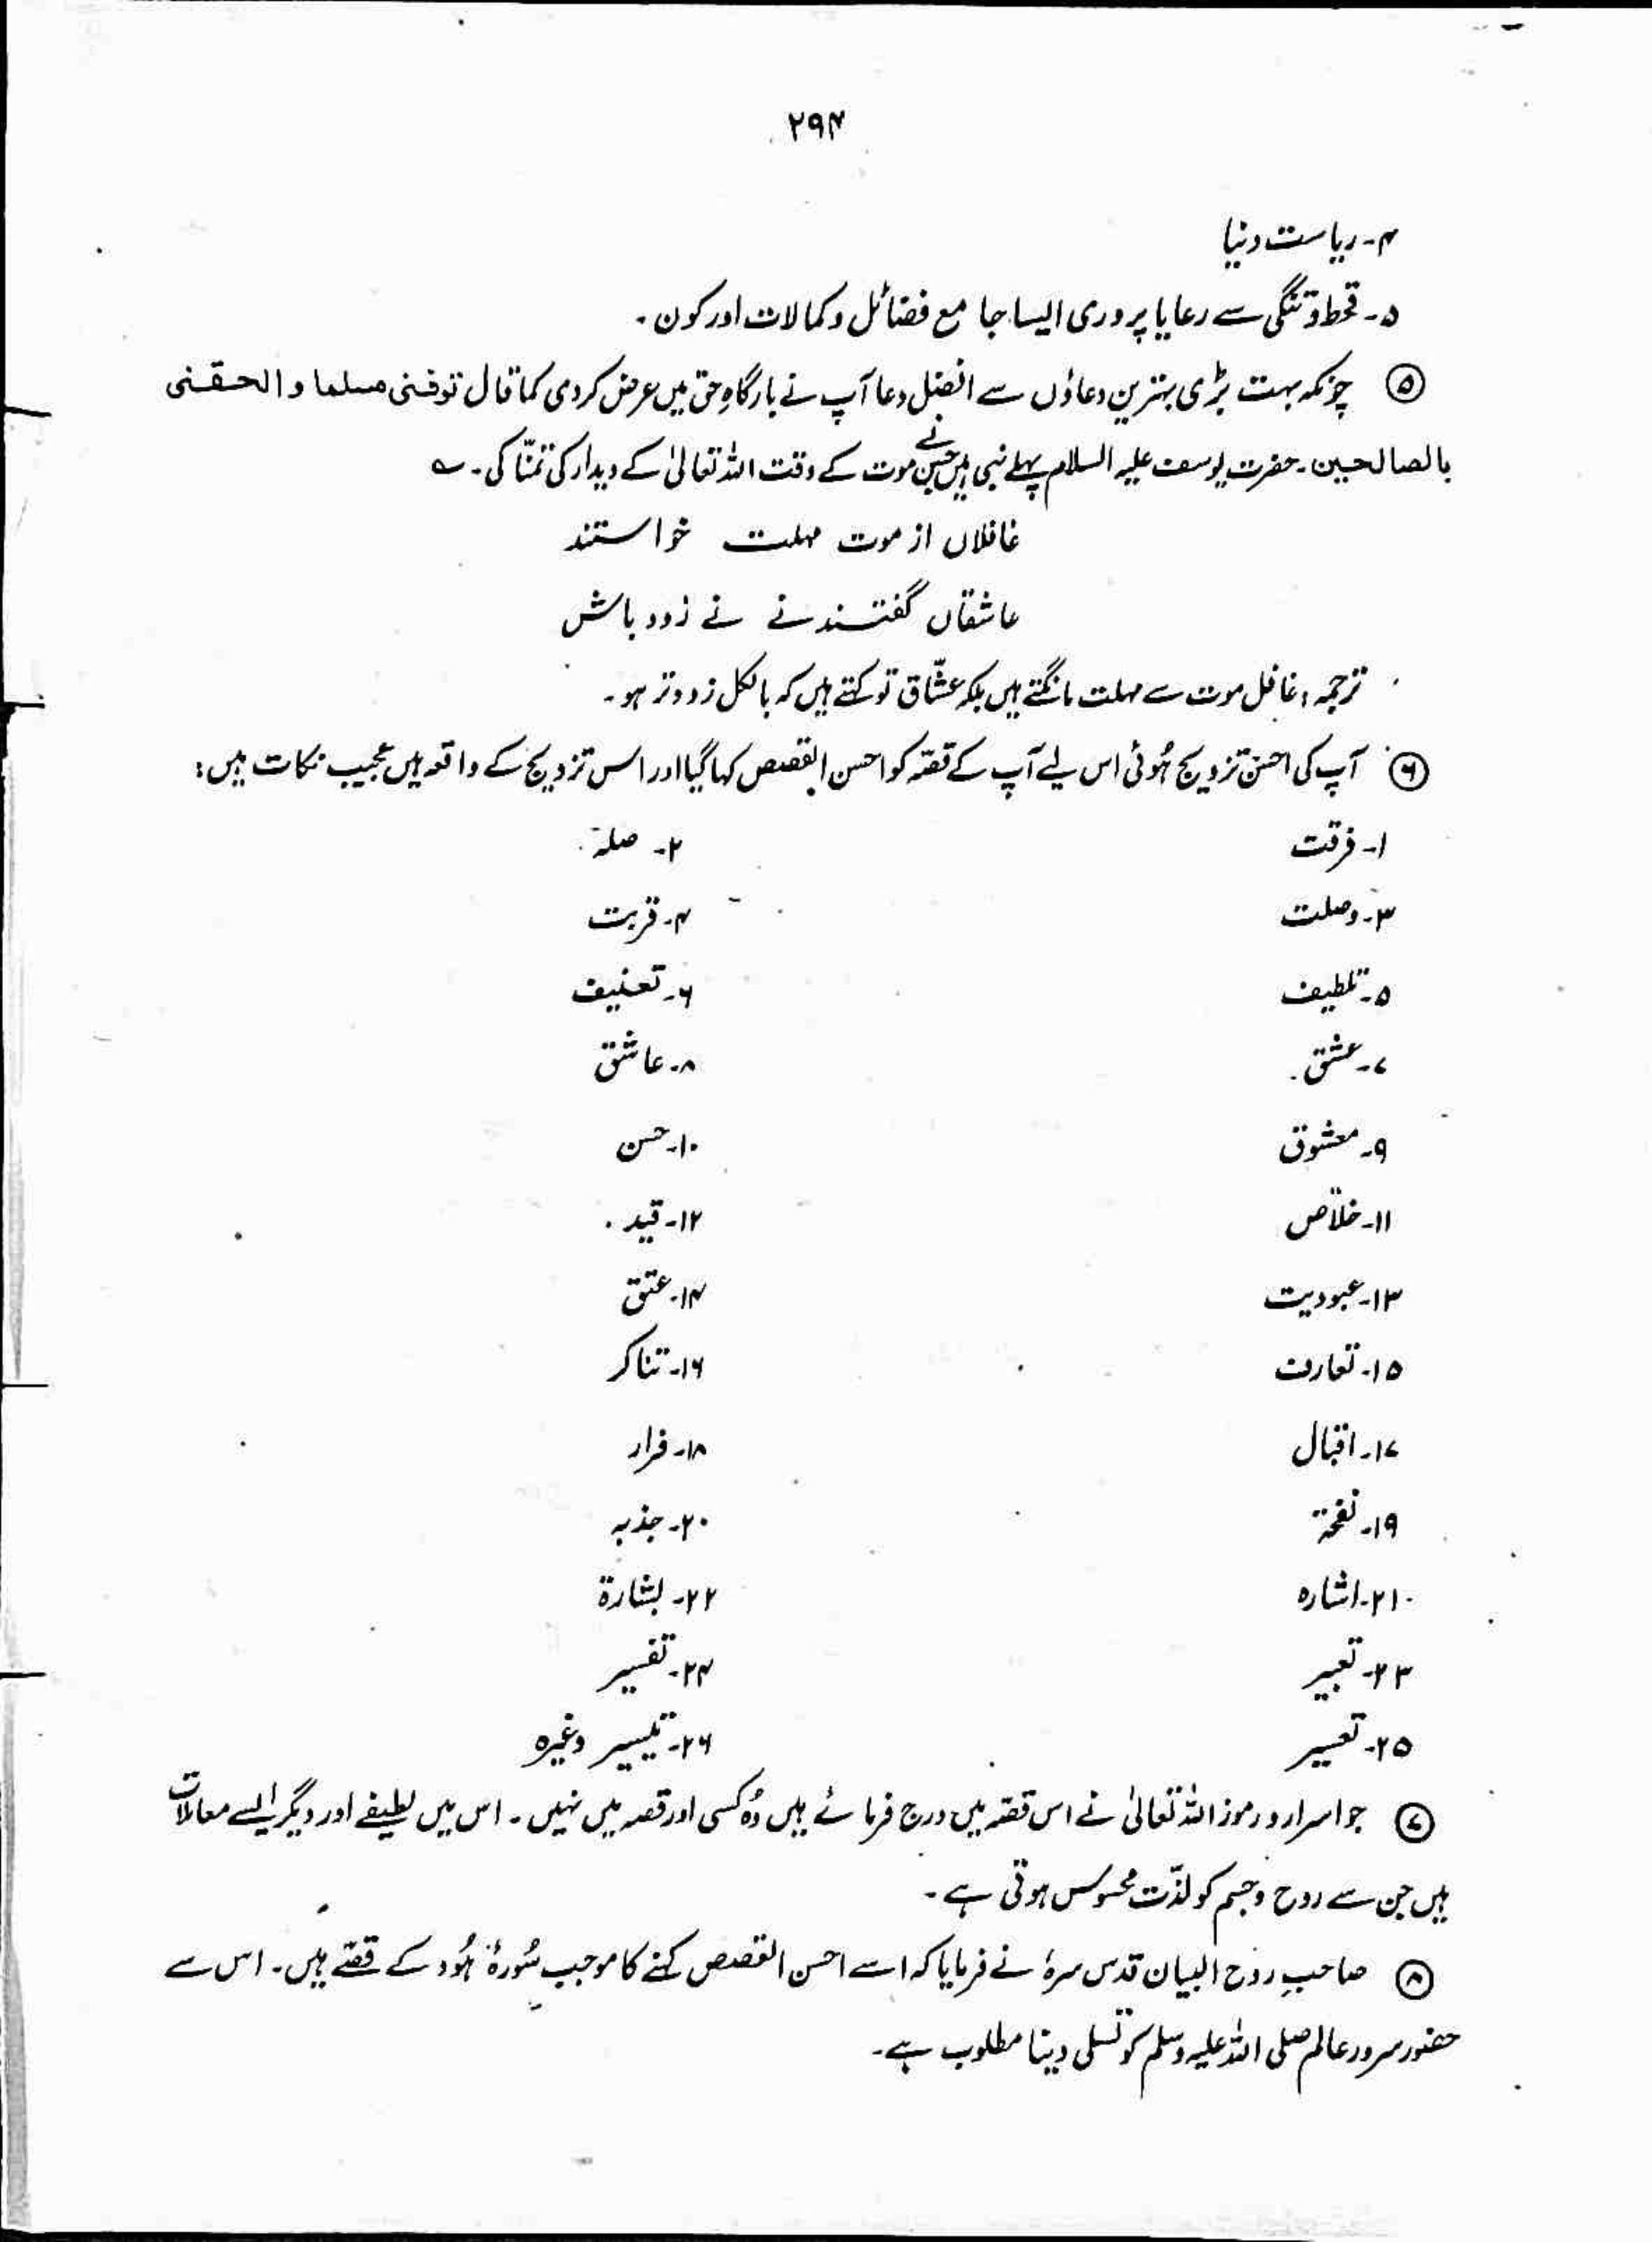 ۲۹۴
۴۔ ریاست دنیا
۵۔ قحط و تنگی سے رعایا پروری ایسا جامع فضائل و کمالات اور کون۔
⑤ چونکہ بہت بڑی بہترین دعاؤں سے افضل دعا آپ نے بارگاہِ حق میں عرض کر دی کما قال توفنی مسلما و الحقنی
بالصالحین۔ حضرت یوسف علیہ السلام پہلے نبی ہیں جنہوں نے موت کے وقت اللہ تعالیٰ کے دیدار کی تمنّا کی۔ ؎
غافلاں از موت مہلت خواستند
عاشقاں گفتند نے نے زود باش
ترجمہ: غافل موت سے مہلت مانگتے ہیں بلکہ عشّاق تو کہتے ہیں کہ بالکل زود تر ہو۔
⑥ آپ کی احسن تزویج ہُوئی اس لیے آپ کے قصّہ کو احسن القصص کہا گیا اور اس تزویج کے واقعہ میں عجیب نکات ہیں:
۱۔ فرقت ۲۔ صلہ
۳۔ وصلت ۴۔ قربت
۵۔ تلطیف ۶۔ تعنیف
۷۔ عشق ۸۔ عاشق
۹۔ معشوق ۱۰۔ حسن
۱۱۔ خلاص ۱۲۔ قید
۱۳۔ عبودیت ۱۴۔ عتق
۱۵۔ تعارف ۱۶۔ تناکر
۱۷۔ اقبال ۱۸۔ فرار
۱۹۔ نفحۃ ۲۰۔ جذبہ
۲۱۔ اشارہ ۲۲۔ بشارۃ
۲۳۔ تعبیر ۲۴۔ تفسیر
۲۵۔ تعسیر ۲۶۔ تیسیر وغیرہ
⑦ جو اسرار و رموز اللہ تعالیٰ نے اس قصّہ میں درج فرمائے ہیں وُہ کسی اور قصہ میں نہیں۔ اس میں لطیفے اور دیگر ایسے معاملات
ہیں جن سے روح و جسم کو لذّت محسوس ہوتی ہے۔
⑧ صاحبِ روح البیان قدس سرہٗ نے فرمایا کہ اسے احسن القصص کہنے کا موجب سُورۂ ہُود کے قصّے ہیں۔ اس سے
حضور سرور عالم صلی اللہ علیہ وسلم کو تسلی دینا مطلوب ہے۔